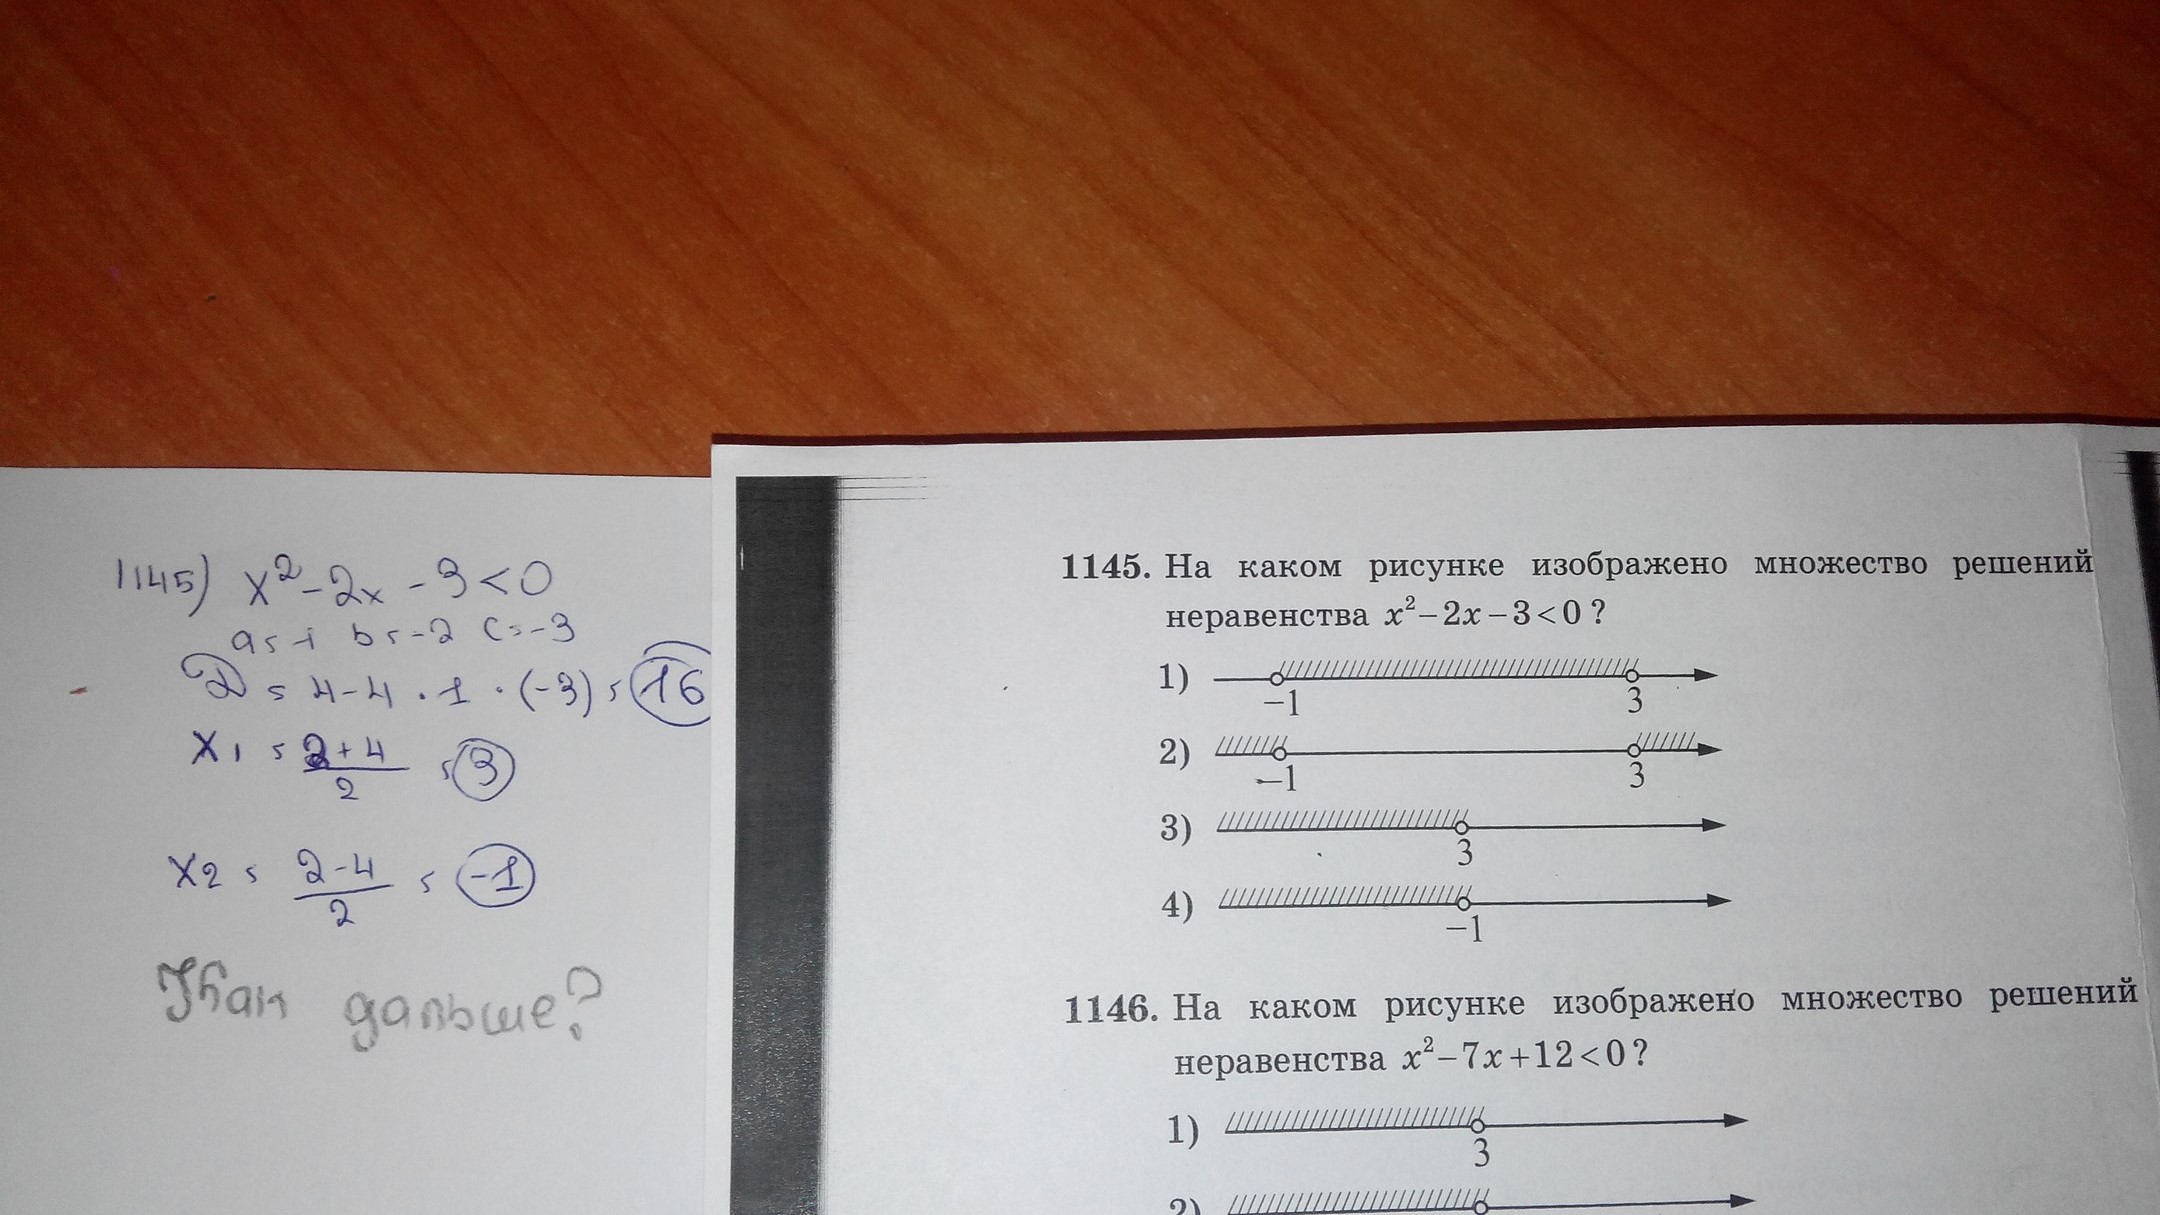 1145) x² - 2x - 3 < 0
a = 1 b = -2 c = -3
D = 4 - 4 · 1 · (-3) = 16
x1 = 2 + 4 / 2 = 3
x2 = 2 - 4 / 2 = -1
Как дальше?
1145. На каком рисунке изображено множество решений
неравенства x² – 2x – 3 < 0 ?
1)
–1 3
2)
–1 3
3)
3
4)
–1
1146. На каком рисунке изображено множество решений
неравенства x² – 7x + 12 < 0 ?
1)
3
2)